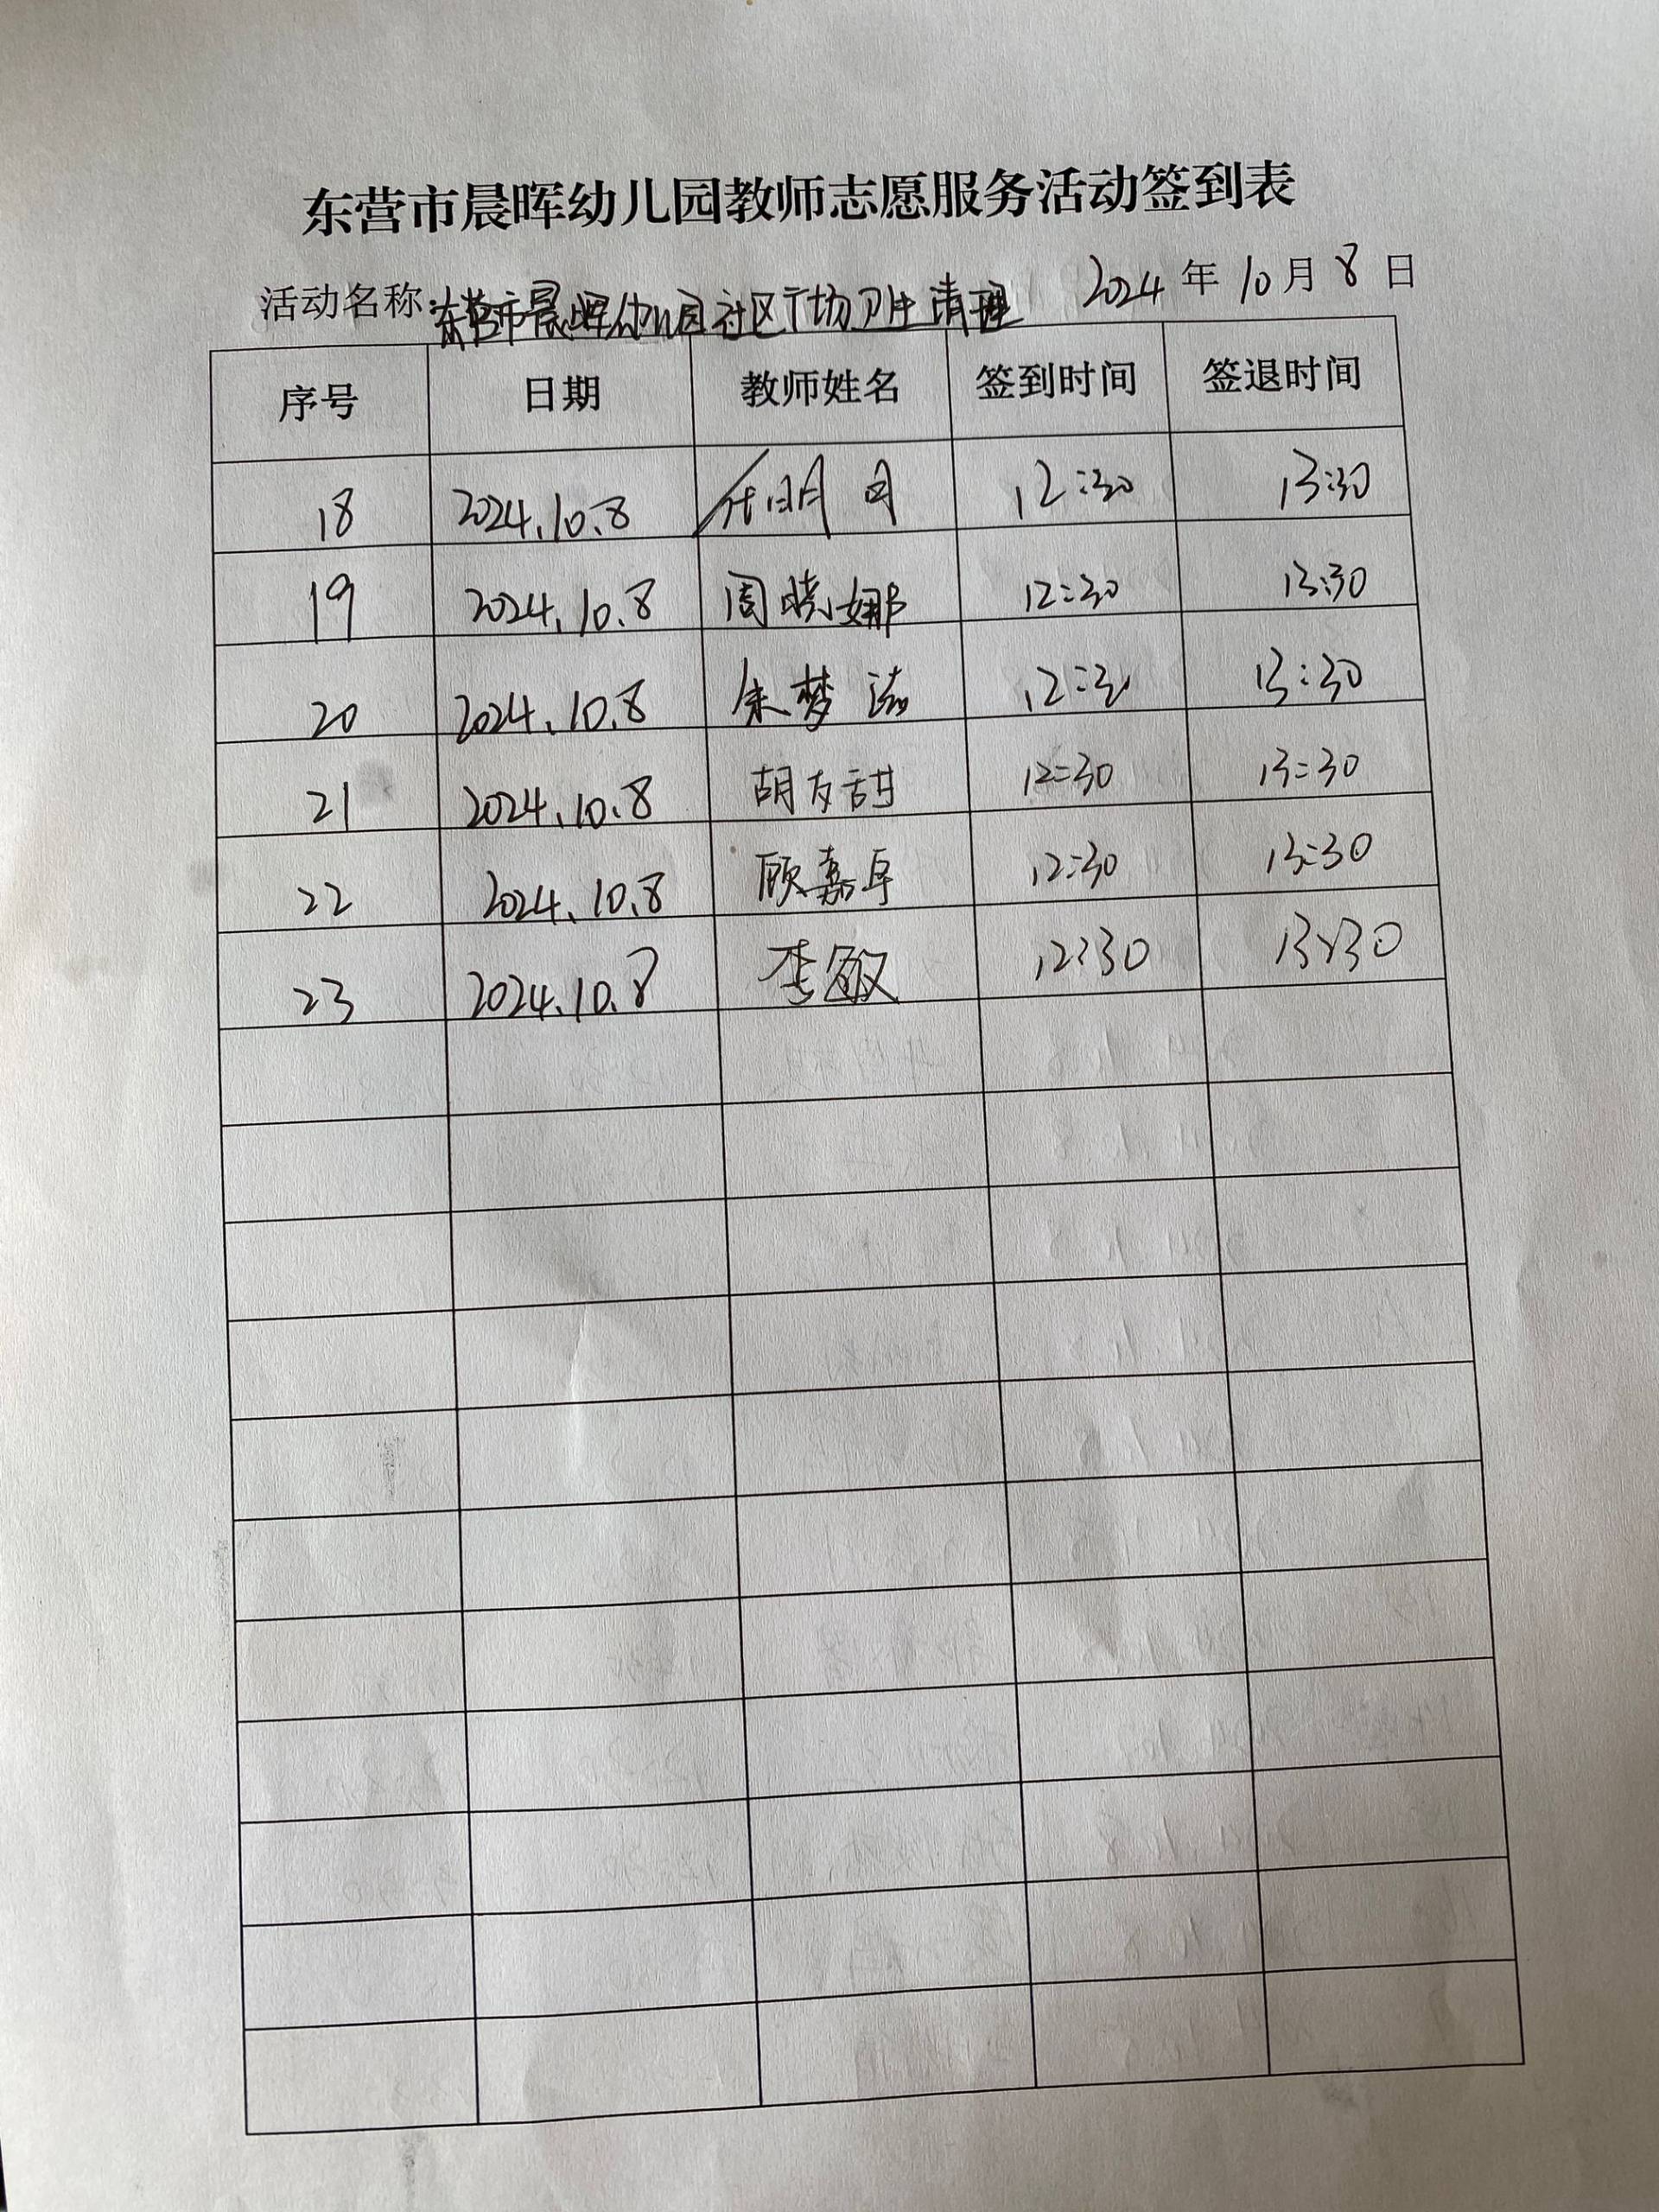 东营市晨晖幼儿园教师志愿服务活动签到表
活动名称:东营市晨晖幼儿园社区广场卫生清理 2024年10月8日
序号 日期 教师姓名 签到时间 签退时间
18 2024.10.8 任明月 12:30 13:30
19 2024.10.8 周晓娜 12:30 13:30
20 2024.10.8 朱梦洁 12:30 13:30
21 2024.10.8 胡友甜 12:30 13:30
22 2024.10.8 顾嘉卓 12:30 13:30
23 2024.10.8 李敏 12:30 13:30